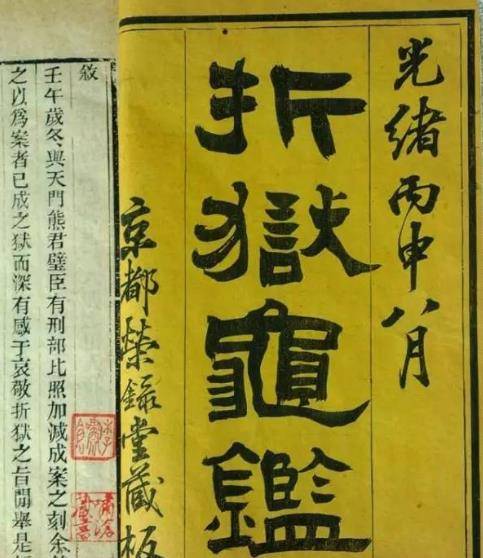 光緒丙申八月
折獄龜鑑
京都榮錄堂藏板
敘
壬午歲冬與天門熊君璧臣有刑部比照加減成案之刻余
之以爲案者已成之獄而深有感于哀敬折獄之旨閒舉是